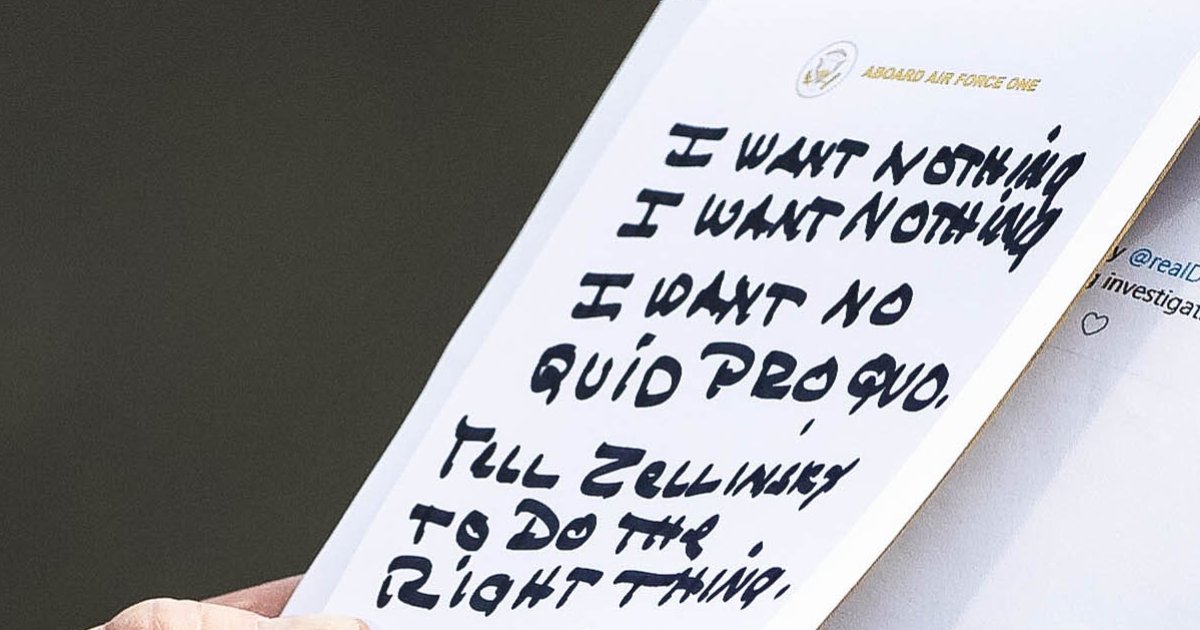 ABOARD AIR FORCE ONE
I WANT NOTHING
I WANT NOTHING
I WANT NO
QUID PRO QUO.
TELL ZELLINSKY
TO DO THE
RIGHT THING.
y @realD
investigat